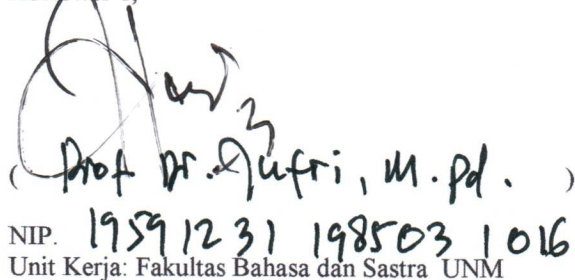 ( Prof Dr. Jufri, M.Pd. )
NIP. 19591231 198503 1 016
Unit Kerja: Fakultas Bahasa dan Sastra UNM